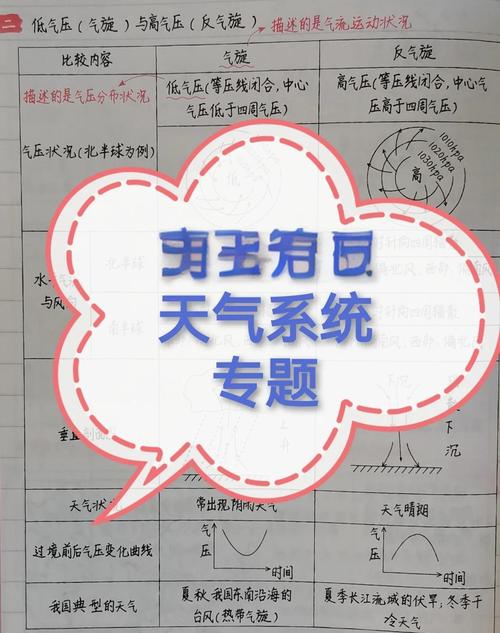 二 低气压(气旋)与高气压(反气旋)
描述的是气流运动状况
比较内容 气旋 反气旋
描述的是气压分布状况
气压状况(北半球为例)
低气压(等压线闭合,中心
气压低于四周气压)
高气压(等压线闭合,中心气
压高于四周气压)
低
1010hpa
1020hpa
1030hpa
高
北半球
南半球
与风
天气系统
专题
下沉
下
沉
上
升
天气状 常出现阴雨天气 天气晴朗
过境前后气压变化曲线
气
压
时间
气
压
时间
我国典型的天气
夏秋:我国东南沿海的
台风(热带气旋)
夏季长江流域的伏旱;冬季干
冷天气